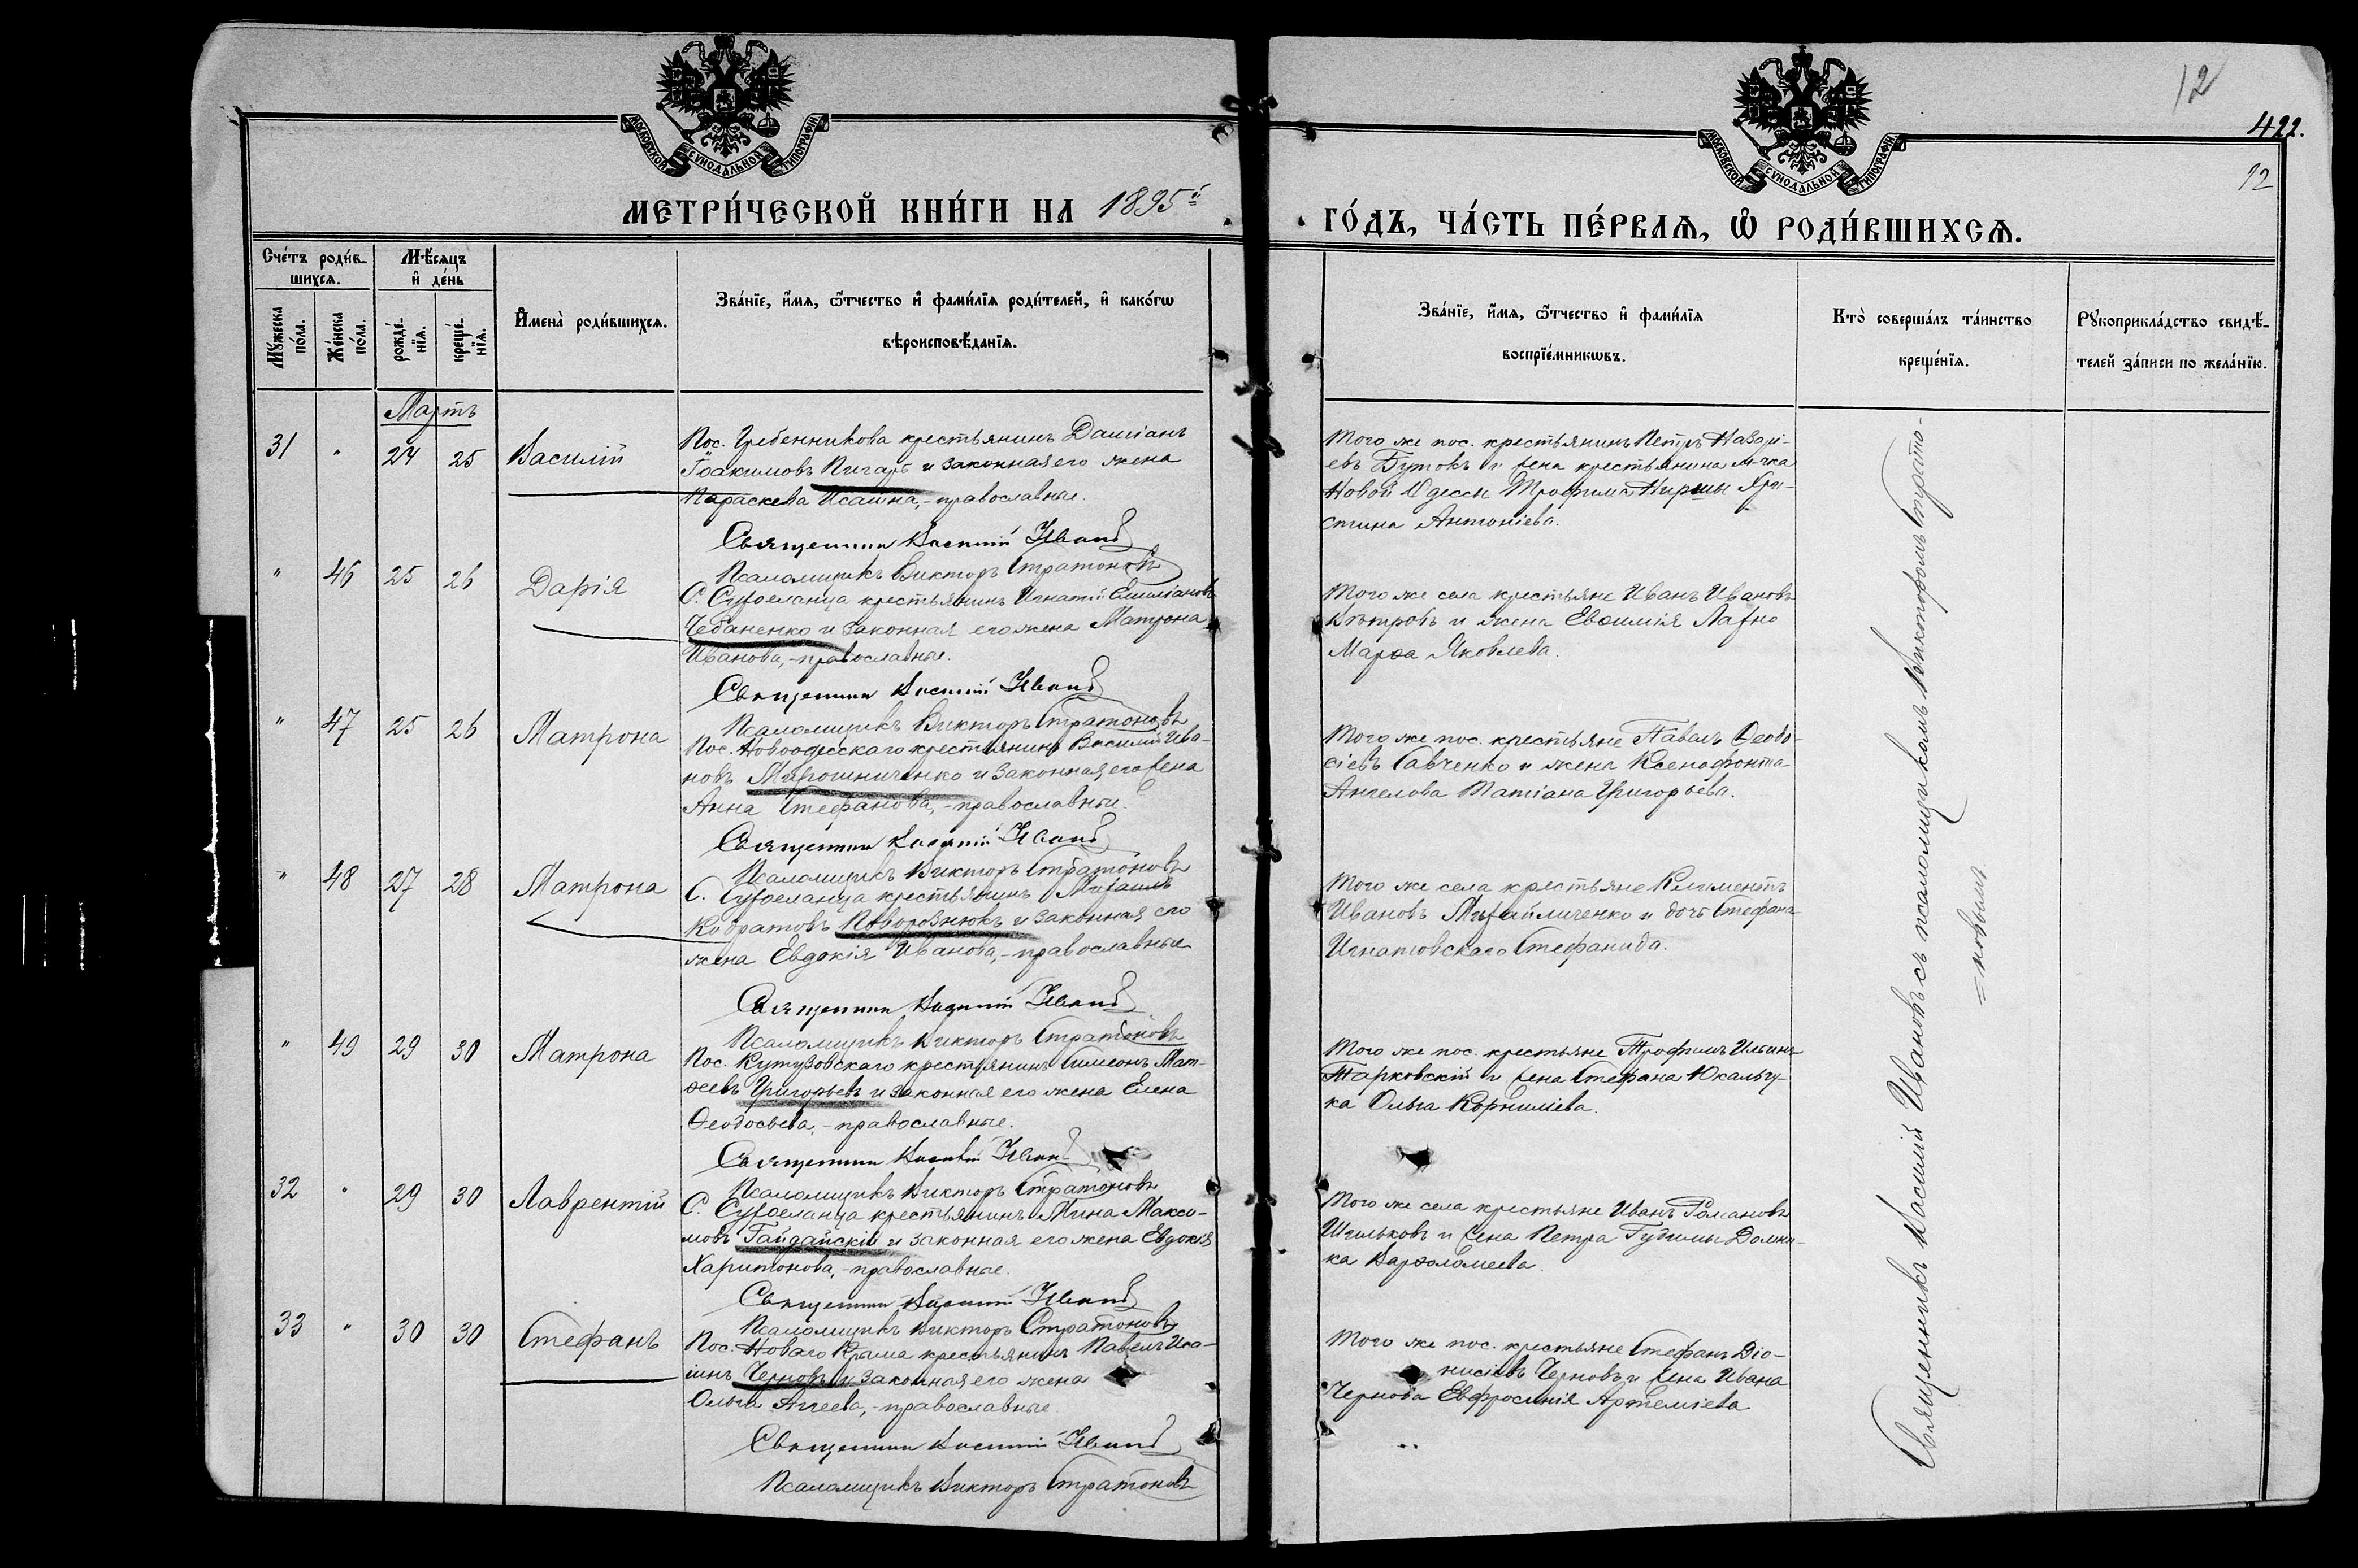 12
422.
12
МОСКОВСКОЙ СѴНОДАЛЬНОЙ ТИПОГРАФІИ
МОСКОВСКОЙ СѴНОДАЛЬНОЙ ТИПОГРАФІИ
МЕТРИ́ЧЕСКОЙ КНИ́ГИ НА 1895й
ГО́ДЪ, ЧА́СТЬ ПЕ́РВАѦ, Ѽ РОДИ́ВШИХСѦ.
Сче́тъ роди́в-
шихсѧ.
Мꙋ́жеска
по́ла.
Же́нска
по́ла.
Мѣ́сѧцъ
и҆ де́нь
рожде́-
нїѧ.
креще́-
нїѧ.
И҆мена̀ роди́вшихсѧ.
Зва́нїе, и҆́мѧ, ѻ҆́тчество и҆ фами́лїѧ роди́телей, и҆ како́гѡ
вѣроисповѣ́данїѧ.
Зва́нїе, и҆́мѧ, ѻ҆́тчество и҆ фами́лїѧ
воспрїе́мникѡвъ.
Кто̀ соверша́лъ та́инство
креще́нїѧ.
Рꙋкоприкла́дство свидѣ́-
телей за́писи по жела́нїю.
Мартъ
31 " 24 25 Василій
Пос. Гребенникова крестьянинъ Даміанъ
Іоакимовъ Пигарь и законная его жена
Параскева Исаина,- православные.
Священник Василий Иванов
Псаломщикъ Викторъ Стратоновъ
Того же пос. крестьянинъ Петръ Назарі-
евъ Бутокъ и жена крестьянина м-чка
Новой Одессы Трофима Хри-
стина Антоніева.
" 46 25 26 Дарія
С. Сухоеланца крестьянинъ Игнатій Емиліановъ
Чебаненко и законная его жена Матрона
Иванова,- православные.
Священник Василий Иванов
Псаломщикъ Викторъ Стратоновъ
Того же села крестьяне Иванъ Ивановъ
и жена Евѳимія
Марѳа Яковлева.
" 47 25 26 Матрона
Пос. Новоодесскаго крестьянинъ Василій Ива-
новъ Мирошниченко и законная его жена
Анна Стефанова,- православные.
Священник Василий Иванов
Псаломщикъ Викторъ Стратоновъ
Того же пос. крестьяне Павелъ Ѳеодо-
сіевъ Савченко и жена Ксенофонта
Ангелова Татіана Григорьева.
" 48 27 28 Матрона
С. Сухоеланца крестьянинъ Михаилъ
Кодратовъ Поворознюкъ и законная его
жена Евдокія Иванова,- православные
Священник Василий Иванов
Псаломщикъ Викторъ Стратоновъ
Того же села крестьяне Климентъ
Ивановъ Михайличенко и дочь Стефана
Игнатовскаго Стефанида.
" 49 29 30 Матрона
Пос. Кутузовскаго крестьянинъ Симеонъ Мат-
ѳеевъ Григорьевъ и законная его жена Елена
Ѳеодосьева,- православные.
Священник Василий Иванов
Псаломщикъ Викторъ Стратоновъ
Того же пос. крестьяне Трофимъ Ильинъ
Тарковскій и жена Стефана Юкальчу-
ка Ольга Корниліева.
32 " 29 30 Лаврентій
С. Сухоеланца крестьянинъ Мина Макси-
мовъ Гайдайскій и законная его жена Евдокія
Харитонова,- православные.
Священник Василий Иванов
Псаломщикъ Викторъ Стратоновъ
Того же села крестьяне Иванъ Романовъ
Шильковъ и жена Петра Гудимы Домни-
ка Варѳоломеева.
33 " 30 30 Стефанъ
Пос. Новаго Крыма крестьянинъ Павелъ Иса-
іинъ Черновъ и законная его жена
Ольга Аггеева,- православные.
Священник Василий Иванов
Псаломщикъ Викторъ Стратоновъ
Того же пос. крестьяне Стефанъ Діо-
нисіевъ Черновъ и жена Ивана
Чернова Евфросинія Артеміева.
Священникъ Василій Ивановъ съ псаломщикомъ Викторомъ Страто-
=новымъ